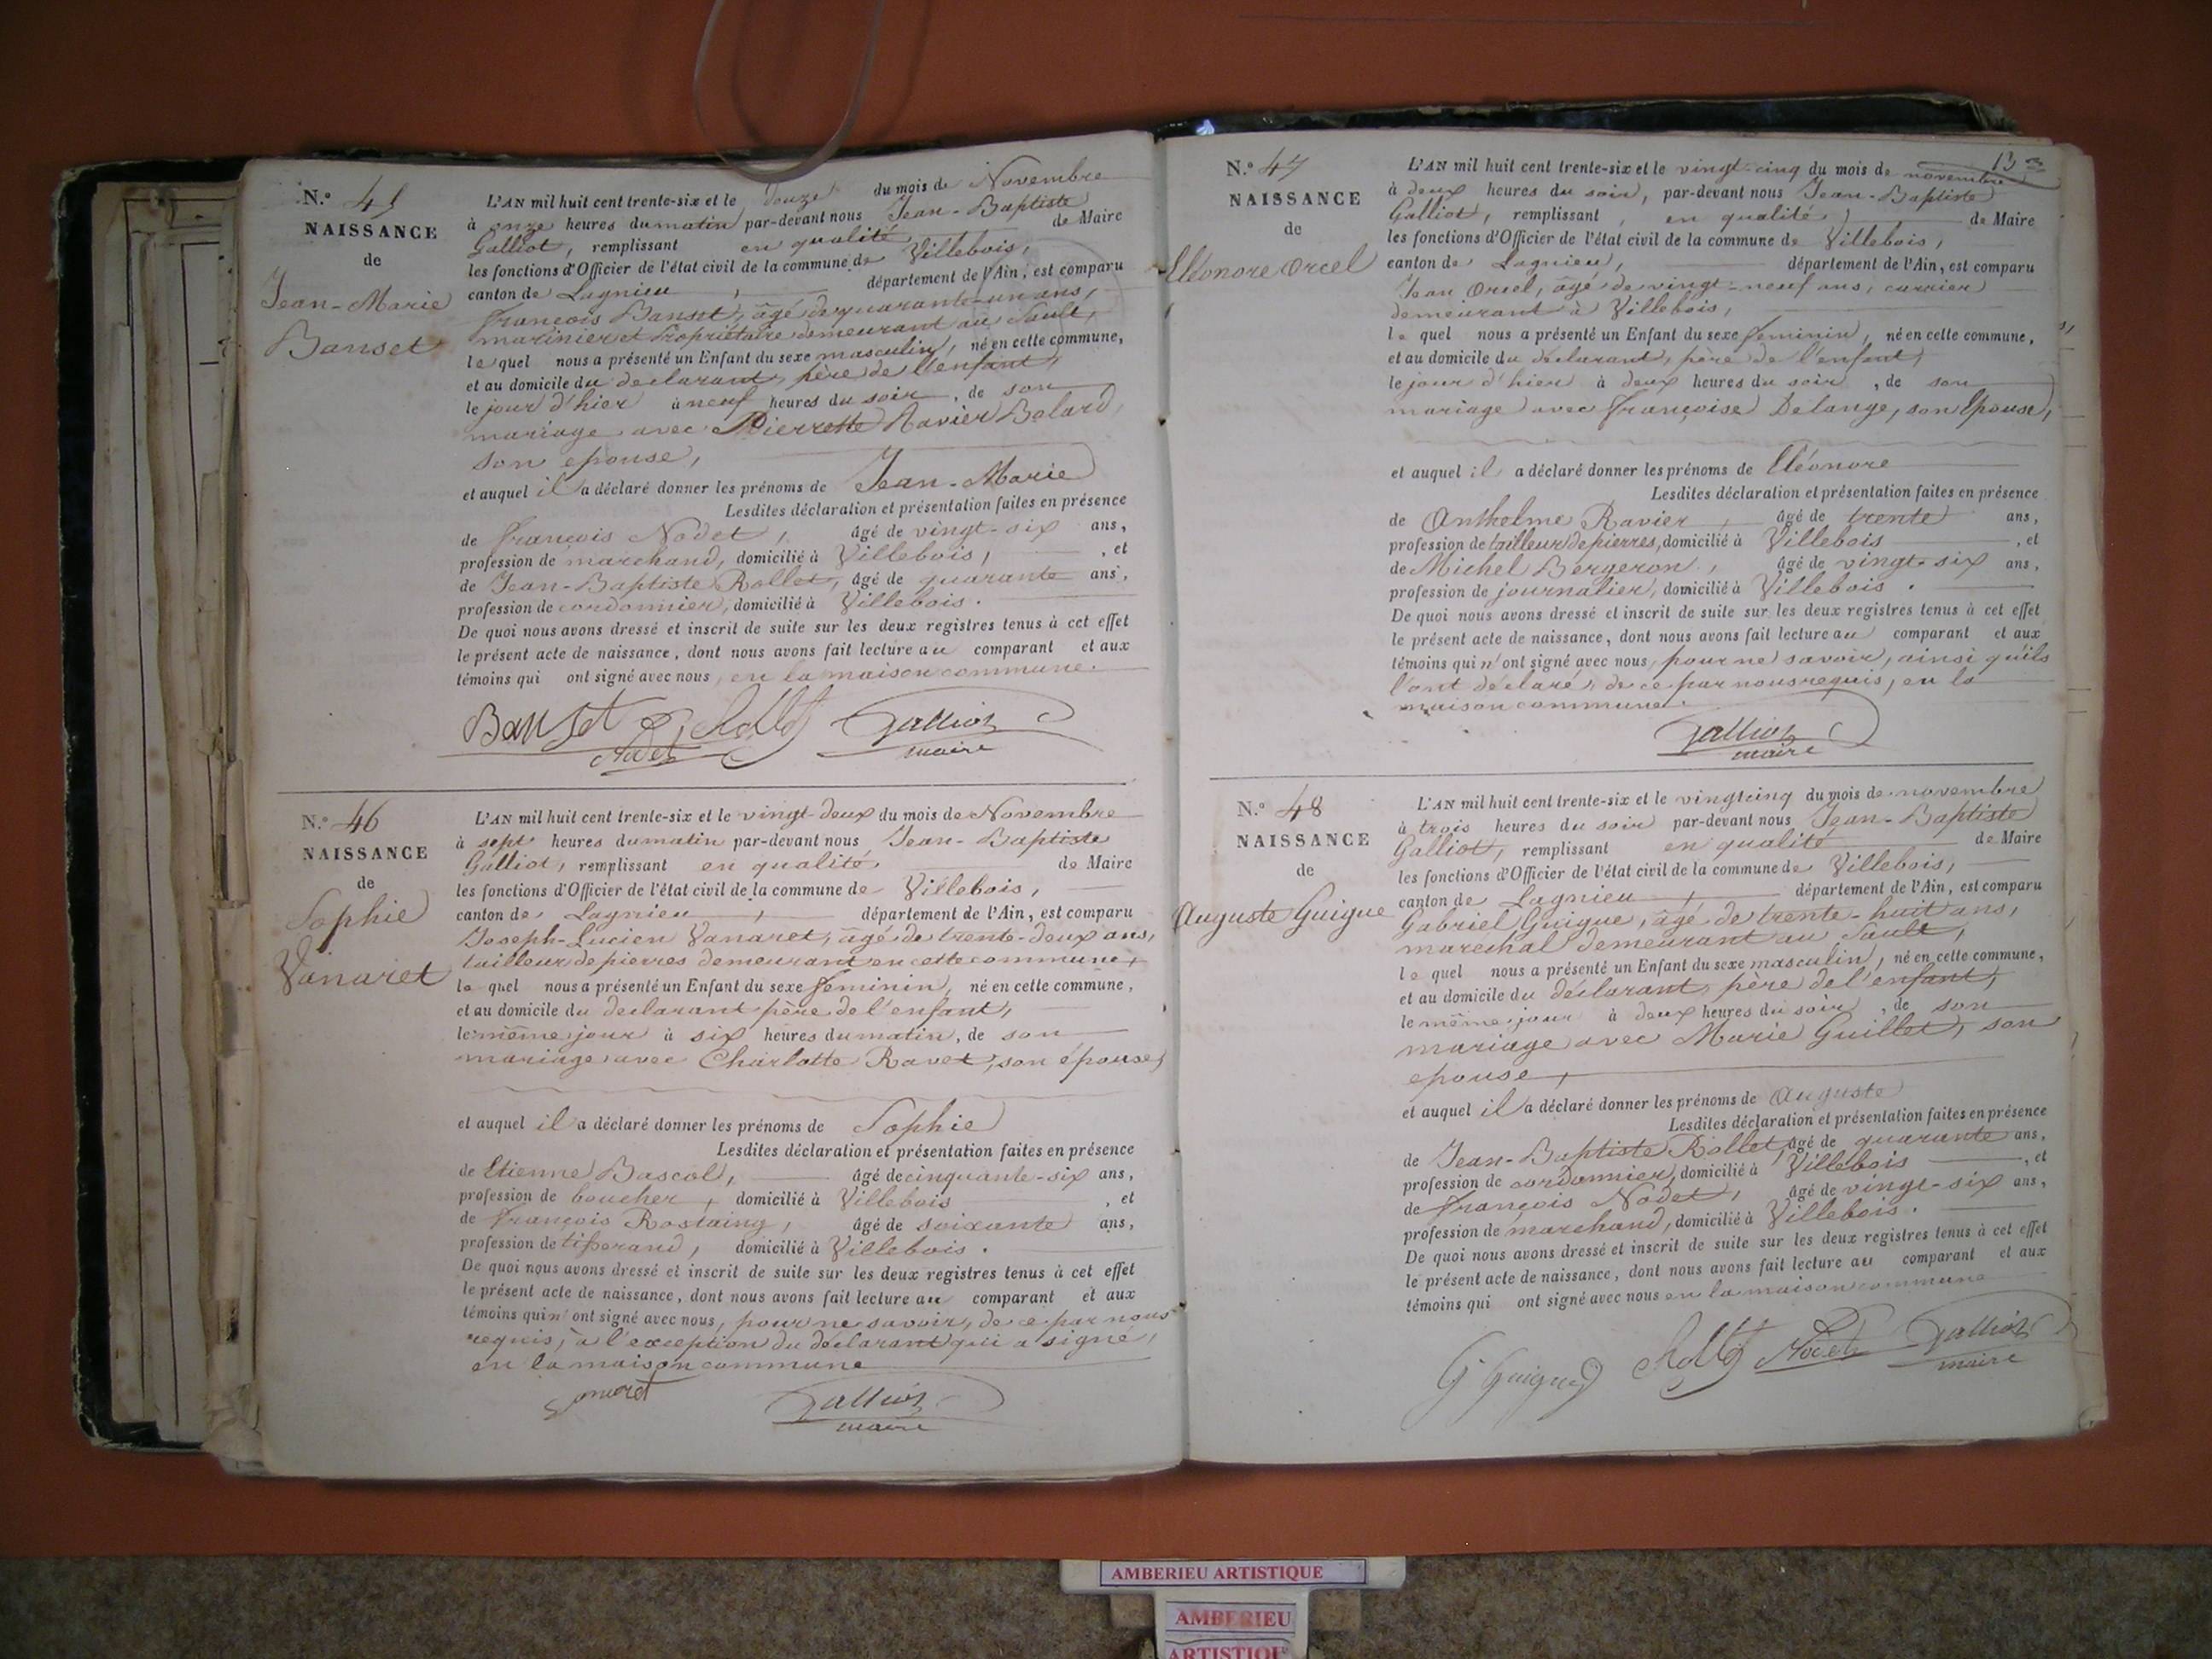 N.º 45
NAISSANCE
de
Jean-Marie
Banset
L'AN mil huit cent trente-six et le douze du mois de Novembre
à onze heures du matin par-devant nous Jean-Baptiste
Galliot, remplissant en qualité de Maire
les fonctions d'Officier de l'état civil de la commune de Villebois,
canton de Lagnieu, département de l'Ain, est comparu
françois Banset, âgé de quarante-un ans,
marinier et Propriétaire demeurant au Sault,
le quel nous a présenté un Enfant du sexe masculin, né en cette commune,
et au domicile du déclarant, père de l'enfant,
le jour d'hier à neuf heures du soir, de son
mariage avec Pierrette Ravier Balard,
son epouse,
et auquel il a déclaré donner les prénoms de Jean-Marie
Lesdites déclaration et présentation faites en présence
de françois Nodet, âgé de vingt-six ans,
profession de marchand, domicilié à Villebois, et
de Jean-Baptiste Rollet, âgé de quarante ans,
profession de cordonnier, domicilié à Villebois.
De quoi nous avons dressé et inscrit de suite sur les deux registres tenus à cet effet
le présent acte de naissance, dont nous avons fait lecture au comparant et aux
témoins qui ont signé avec nous, en la maison commune.
Banset Rollet Galliot
Nodet maire
N.º 46
NAISSANCE
de
Sophie
Vanaret
L'AN mil huit cent trente-six et le vingt-deux du mois de Novembre
à sept heures du matin par-devant nous Jean-Baptiste
Galliot, remplissant en qualité de Maire
les fonctions d'Officier de l'état civil de la commune de Villebois,
canton de Lagnieu, département de l'Ain, est comparu
Joseph-Lucien Vanaret, âgé de trente-deux ans,
tailleur de pierres demeurant en cette commune,
le quel nous a présenté un Enfant du sexe feminin, né en cette commune,
et au domicile du déclarant père de l'enfant,
le même jour à six heures du matin, de son
mariage avec Charlotte Ravet, son épouse,
et auquel il a déclaré donner les prénoms de Sophie
Lesdites déclaration et présentation faites en présence
de Etienne Bascol, âgé de cinquante-six ans,
profession de boucher, domicilié à Villebois, et
de françois Rostaing, âgé de soixante ans,
profession de tisserand, domicilié à Villebois.
De quoi nous avons dressé et inscrit de suite sur les deux registres tenus à cet effet
le présent acte de naissance, dont nous avons fait lecture au comparant et aux
témoins qui n'ont signé avec nous, pour ne savoir, de ce par nous
requis, à l'exception du déclarant qui a signé,
en la maison commune
Galliot
maire
13
N.º 47
NAISSANCE
de
Eléonore Orcel
L'AN mil huit cent trente-six et le vingt-cinq du mois de novembre
à deux heures du soir, par-devant nous Jean-Baptiste
Galliot, remplissant, en qualité de Maire
les fonctions d'Officier de l'état civil de la commune de Villebois,
canton de Lagnieu, département de l'Ain, est comparu
Jean Orcel, âgé de vingt-neuf ans, carrier
demeurant à Villebois,
le quel nous a présenté un Enfant du sexe feminin, né en cette commune,
et au domicile du déclarant, père de l'enfant,
le jour d'hier à deux heures du soir, de son
mariage avec françoise Delange, son Epouse,
et auquel il a déclaré donner les prénoms de Eléonore
Lesdites déclaration et présentation faites en présence
de Anthelme Ravier, âgé de trente ans,
profession de tailleur de pierres, domicilié à Villebois, et
de Michel Bergeron, âgé de vingt-six ans,
profession de journalier, domicilié à Villebois.
De quoi nous avons dressé et inscrit de suite sur les deux registres tenus à cet effet
le présent acte de naissance, dont nous avons fait lecture au comparant et aux
témoins qui n'ont signé avec nous, pour ne savoir, ainsi qu'ils
l'ont déclaré, de ce par nous requis, en la
maison commune.
Galliot
maire
N.º 48
NAISSANCE
de
Auguste Guigue
L'AN mil huit cent trente-six et le vingt cinq du mois de novembre
à trois heures du soir par-devant nous Jean-Baptiste
Galliot, remplissant en qualité de Maire
les fonctions d'Officier de l'état civil de la commune de Villebois,
canton de Lagnieu, département de l'Ain, est comparu
Gabriel Guigue, âgé de trente-huit ans,
marechal demeurant au Sault,
le quel nous a présenté un Enfant du sexe masculin, né en cette commune,
et au domicile du déclarant, père de l'enfant,
le même jour à deux heures du soir, de son
mariage avec Marie Guillet, son
epouse,
et auquel il a déclaré donner les prénoms de Auguste
Lesdites déclaration et présentation faites en présence
de Jean-Baptiste Rollet, âgé de quarante ans,
profession de cordonnier, domicilié à Villebois, et
de françois Nodet, âgé de vingt-six ans,
profession de marchand, domicilié à Villebois.
De quoi nous avons dressé et inscrit de suite sur les deux registres tenus à cet effet
le présent acte de naissance, dont nous avons fait lecture au comparant et aux
témoins qui ont signé avec nous en la maison commune
G Guigue Rollet Nodet Galliot
maire
AMBERIEU ARTISTIQUE
AMBERIEU
ARTISTIQUE